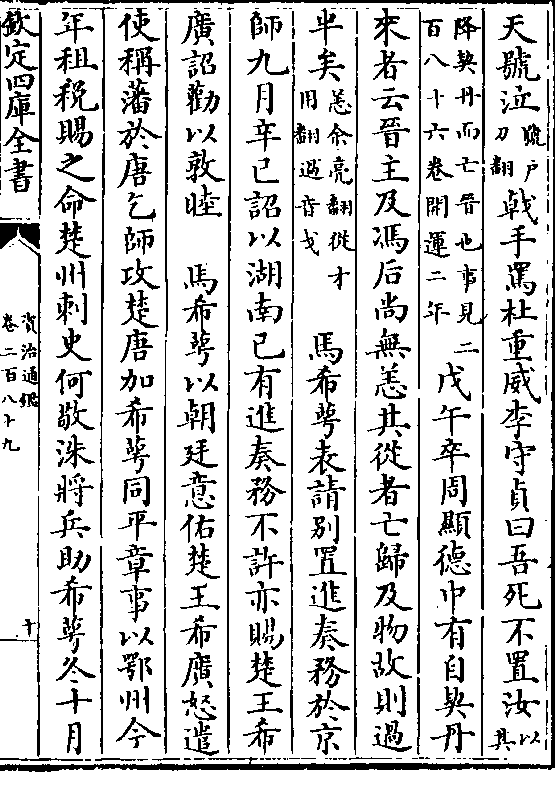 天號泣號户刀翻戟手罵杜重威李守貞曰吾死不置汝以其
降契丹而亡晉也事見二百八十六卷開運二年戊午卒周顯德中有自契丹
來者云晉主及馮后尚無恙其從者亡歸及物故則過
半矣恙余亮翻從才用翻過音戈馬希萼表請别置進奏務於京
師九月辛巳詔以湖南已有進奏務不許亦賜楚王希
廣詔勸以敦睦 馬希萼以朝廷意佑楚王希廣怒遣
使稱藩於唐乞師攻楚唐加希萼同平章事以鄂州今
年租税賜之命楚州刺史何敬洙將兵助希萼冬十月
欽定四庫全書
資治通鑑
卷二百八十九
十